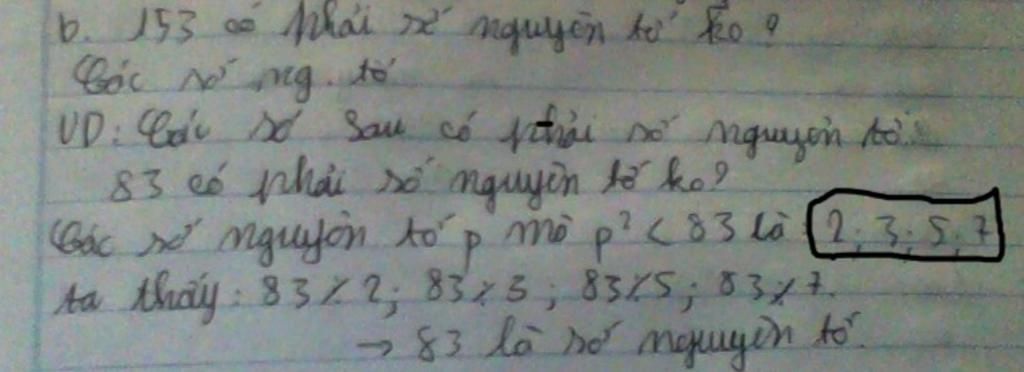 b. 153 có phải số nguyên tố ko?
Các số ng. tố
VD: Các số sau có phải số nguyên tố.
83 có phải số nguyên tố ko?
Các số nguyên tố p mà p² < 83 là 2; 3; 5; 7
ta thấy: 83 ⋮̸ 2; 83 ⋮̸ 3; 83 ⋮̸ 5; 83 ⋮̸ 7.
→ 83 là số nguyên tố.